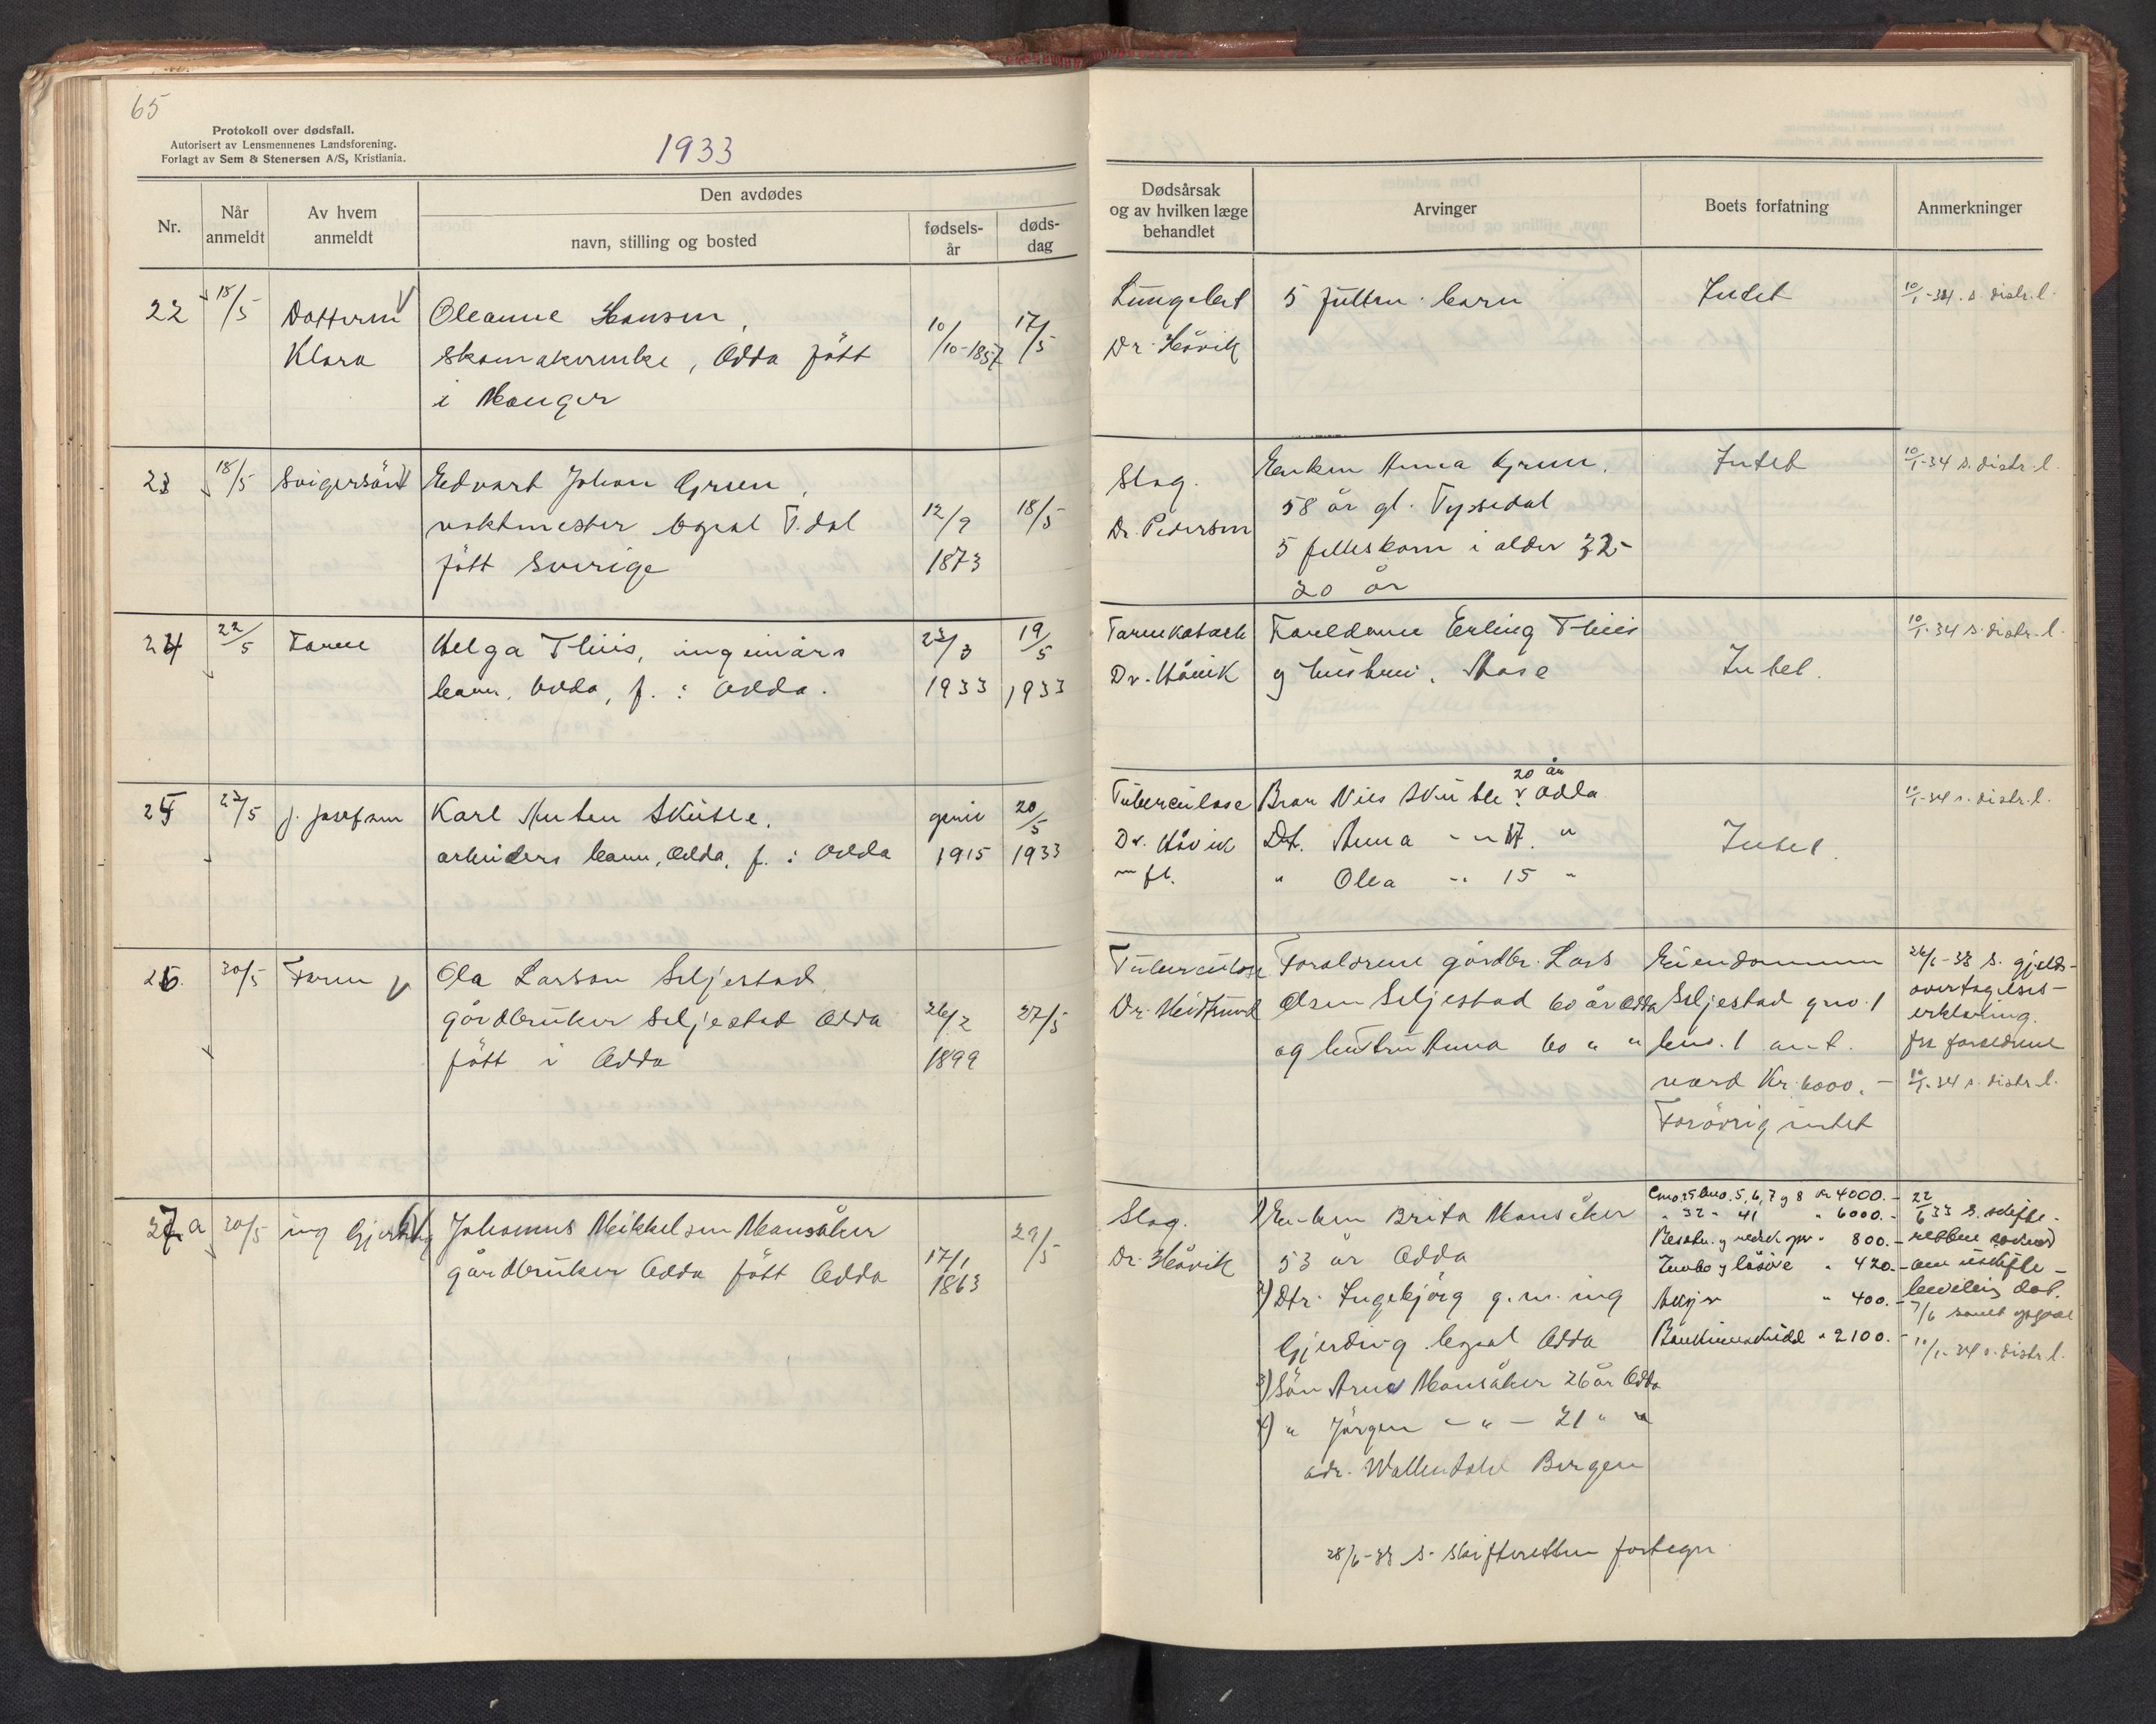 65
Protokoll over dødsfall.
Autorisert av Lensmennenes Landsforening.
Forlagt av Sem & Stenersen A/S, Kristiania.
1933
Nr.
Når anmeldt
Av hvem anmeldt
Den avdødes
navn, stilling og bosted
fødsels-år
døds-dag
22 18/5 Datteren Oleanne Hansen,
Klara skomakerenke, Odda født 10/10-1857 17/5
i Manger
23 18/5 Svigersönn Edvart Johan Gruen,
vaktmester bopal T.dal 12/9 18/5
fött Sverige 1873
24 22/5 Faren Helga Thiis, ingeniörs 23/3 19/5
barn, Odda, f. i Odda. 1933 1933
25 22/5 J. Josefsen Karl Anton Skutle, 20/5
arbeiders barn, Odda, f. i Odda 1915 1933
26. 30/5 Faren Ola Larson Seljestad
gårdbruker Seljestad Odda 26/2 27/5
fött i Odda 1899
27a 30/5 ing Gjerding Johannes Mikkelsen Mannsåker 29/5
gårdbruker Odda fött Odda 17/1
1863
Dødsårsak
og av hvilken læge
behandlet
Arvinger
Boets forfatning
Anmerkninger
Lungebet 5 fullm. barn Intet 10/1-34. s. distr.l.
Dr. Håvik
Slag. Enken Anna Gruen, Intet 10/1-34 s. distr.l.
58 år gl. Tyssedal
Dr. Pedersen
5 fellesbarn i alder 32-
20 år
Tarmkatarh Foreldrene Erling Thiis 10/1-34 s. distr.l.
Dr. Håvik og hustru, Aase Intet.
20 år
Tuberculose Bror Nils Skutle Odda 10/1-34 s. distr.l.
Dr. Håvik Dt. Anna - " 17. " Intet.
m fl. " Olea - " 15 "
Tuberculose Foreldrene gårdbr. Lars Eiendommen 26/6-33 s. gjelds-
Dr. Meidtsund Olsen Seljestad 60 år Odda Seljestad gno. 1 overtagelses-
erklæring.
og hustru Anna 60 " " bno. 1 ant. fra foreldrene
verd Kr. 6000.- 10/1-34 s. distr.l.
Forövrig intet
Slag. 1) Enken Brita Mannsåker Gno. 25 bno. 5, 6, 7 og 8 kr 4000.- 22/6 33 s. skifte-
" 32 " 41 " 6000.- retten söknad
Dr. Håvik 53 år Odda Besetn. og redsk. " 800.-
Innbo og lösöre " 420.- om uskifte-
2) Dtr. Ingebjörg g.m. ing " 400.- bevilling dat.
7/6 samt
Gjerding bopal Odda " 2100.- 10/1-34 s. distr.l.
3) Sön Arne Mannsåker 26 år Odda
4) " Jörgen - " - 21 " "
adr. Wallendahl Bergen
28/6-33 s. skifteretten fortegn.